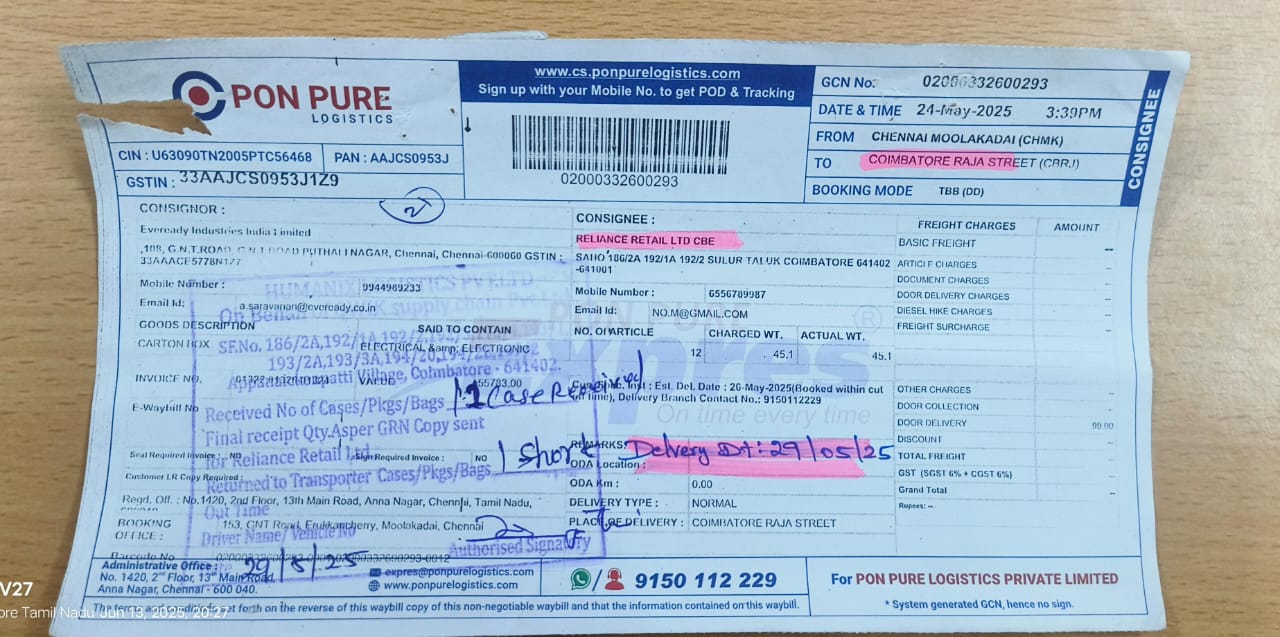 PON PURE
LOGISTICS
CIN : U63090TN2005PTC56468 PAN : AAJCS0953J
GSTIN : 33AAJCS0953J1Z9
www.cs.ponpurelogistics.com
Sign up with your Mobile No. to get POD & Tracking
02000332600293
GCN No: 02000332600293
DATE & TIME 24-May-2025 3:39PM
FROM CHENNAI MOOLAKADAI (CHMK)
TO COIMBATORE RAJA STREET (CBRJ)
BOOKING MODE TBB (DD)
CONSIGNEE
CONSIGNOR :
Eveready Industries India Limited
,108, G.N.T.ROAD, G.N.T ROAD PUTHAI NAGAR, Chennai, Chennai-600060 GSTIN :
Mobile Number : 9944989233
Email Id: a.saravanan@eveready.co.in
GOODS DESCRIPTION SAID TO CONTAIN
CARTON BOX ELECTRICAL &amp; ELECTRONIC
INVOICE NO. VALUE
E-Waybill No
Seal Required Invoice : NO Sign Required Invoice : NO
Customer LR Copy Required :
Regd. Off. : No.1420, 2nd Floor, 13th Main Road, Anna Nagar, Chennai, Tamil Nadu,
BOOKING OFFICE : 153, GNT Road, Erukkancherry, Moolakadai, Chennai
Barcode No
CONSIGNEE :
RELIANCE RETAIL LTD CBE
186/2A 192/1A 192/2 SULUR TALUK COIMBATORE 641402
-641001
Mobile Number : 6556789987
Email Id: NO.M@GMAIL.COM
NO. OF ARTICLE CHARGED WT. ACTUAL WT.
12 45.1 45.1
Inst : Est. Del. Date : 26-May-2025(Booked within cut
time), Delivery Branch Contact No.: 9150112229
REMARKS: Delvery Dt: 29/05/25
ODA Location :
ODA Km : 0.00
DELIVERY TYPE : NORMAL
PLACE OF DELIVERY : COIMBATORE RAJA STREET
PON PURE
expres
®
On time every time
FREIGHT CHARGES AMOUNT
BASIC FREIGHT --
ARTICLE CHARGES
DOCUMENT CHARGES --
DOOR DELIVERY CHARGES --
DIESEL HIKE CHARGES --
FREIGHT SURCHARGE --
OTHER CHARGES --
DOOR COLLECTION --
DOOR DELIVERY 99.00
DISCOUNT --
TOTAL FREIGHT --
GST (SGST 6% + CGST 6%)
Grand Total --
Rupees: --
HUMANIX LOGISTICS PVT LTD
On Behalf supply chain
SF.No. 186/2A,192/1A,192/
Village, Coimbatore - 641402.
Received No of Cases/Pkgs/Bags 1 Case Received
Final receipt Qty.Asper GRN Copy sent
for Reliance Retail Ltd
1 Short
Returned to Transporter Cases/Pkgs/Bags
Out Time
Driver Name/ Vehicle No
Authorised Signatory
29/5/25
Administrative Office :
No. 1420, 2nd Floor, 13th Main Road,
Anna Nagar, Chennai - 600 040.
expres@ponpurelogistics.com
www.ponpurelogistics.com
9150 112 229
For PON PURE LOGISTICS PRIVATE LIMITED
* System generated GCN, hence no sign.
forth on the reverse of this waybill copy of this non-negotiable waybill and that the information contained on this waybill.
V27
ore Tamil Nadu Jun 13, 2025, 20:27